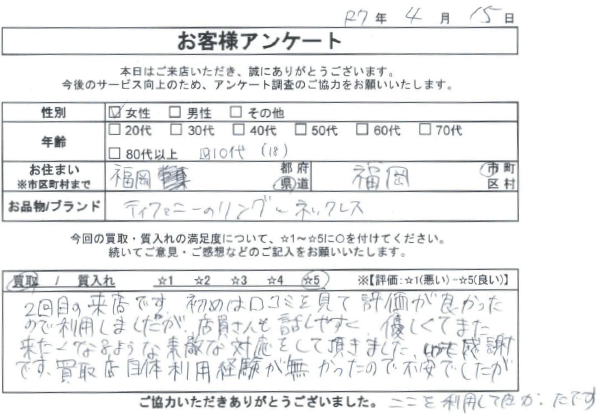 R7年 4月 15日
お客様アンケート
本日はご来店いただき、誠にありがとうございます。
今後のサービス向上のため、アンケート調査のご協力をお願いいたします。
性別 ☑女性 □男性 □その他
年齢 □20代 □30代 □40代 □50代 □60代 □70代
□80代以上 ☑10代 (18)
お住まい ※市区町村まで 福岡 都府県道 福岡 市町区村
お品物/ブランド ティファニーのリング〜ネックレス
今回の買取・質入れの満足度について、☆1〜☆5に○を付けてください。
続いてご意見・ご感想などのご記入をお願いいたします。
買取 / 質入れ ☆1 ☆2 ☆3 ☆4 ☆5 ※【評価:☆1(悪い)−☆5(良い)】
2回目の来店です。初めは口コミを見て評価が良かった
ので利用しましたが、店員さんも話しやすく、優しくてまた
来たくなるような素敵な対応をして頂きました。感謝
です。買取店自体利用経験が無かったので不安でしたが
ここを利用して良かったです
ご協力いただきありがとうございました。